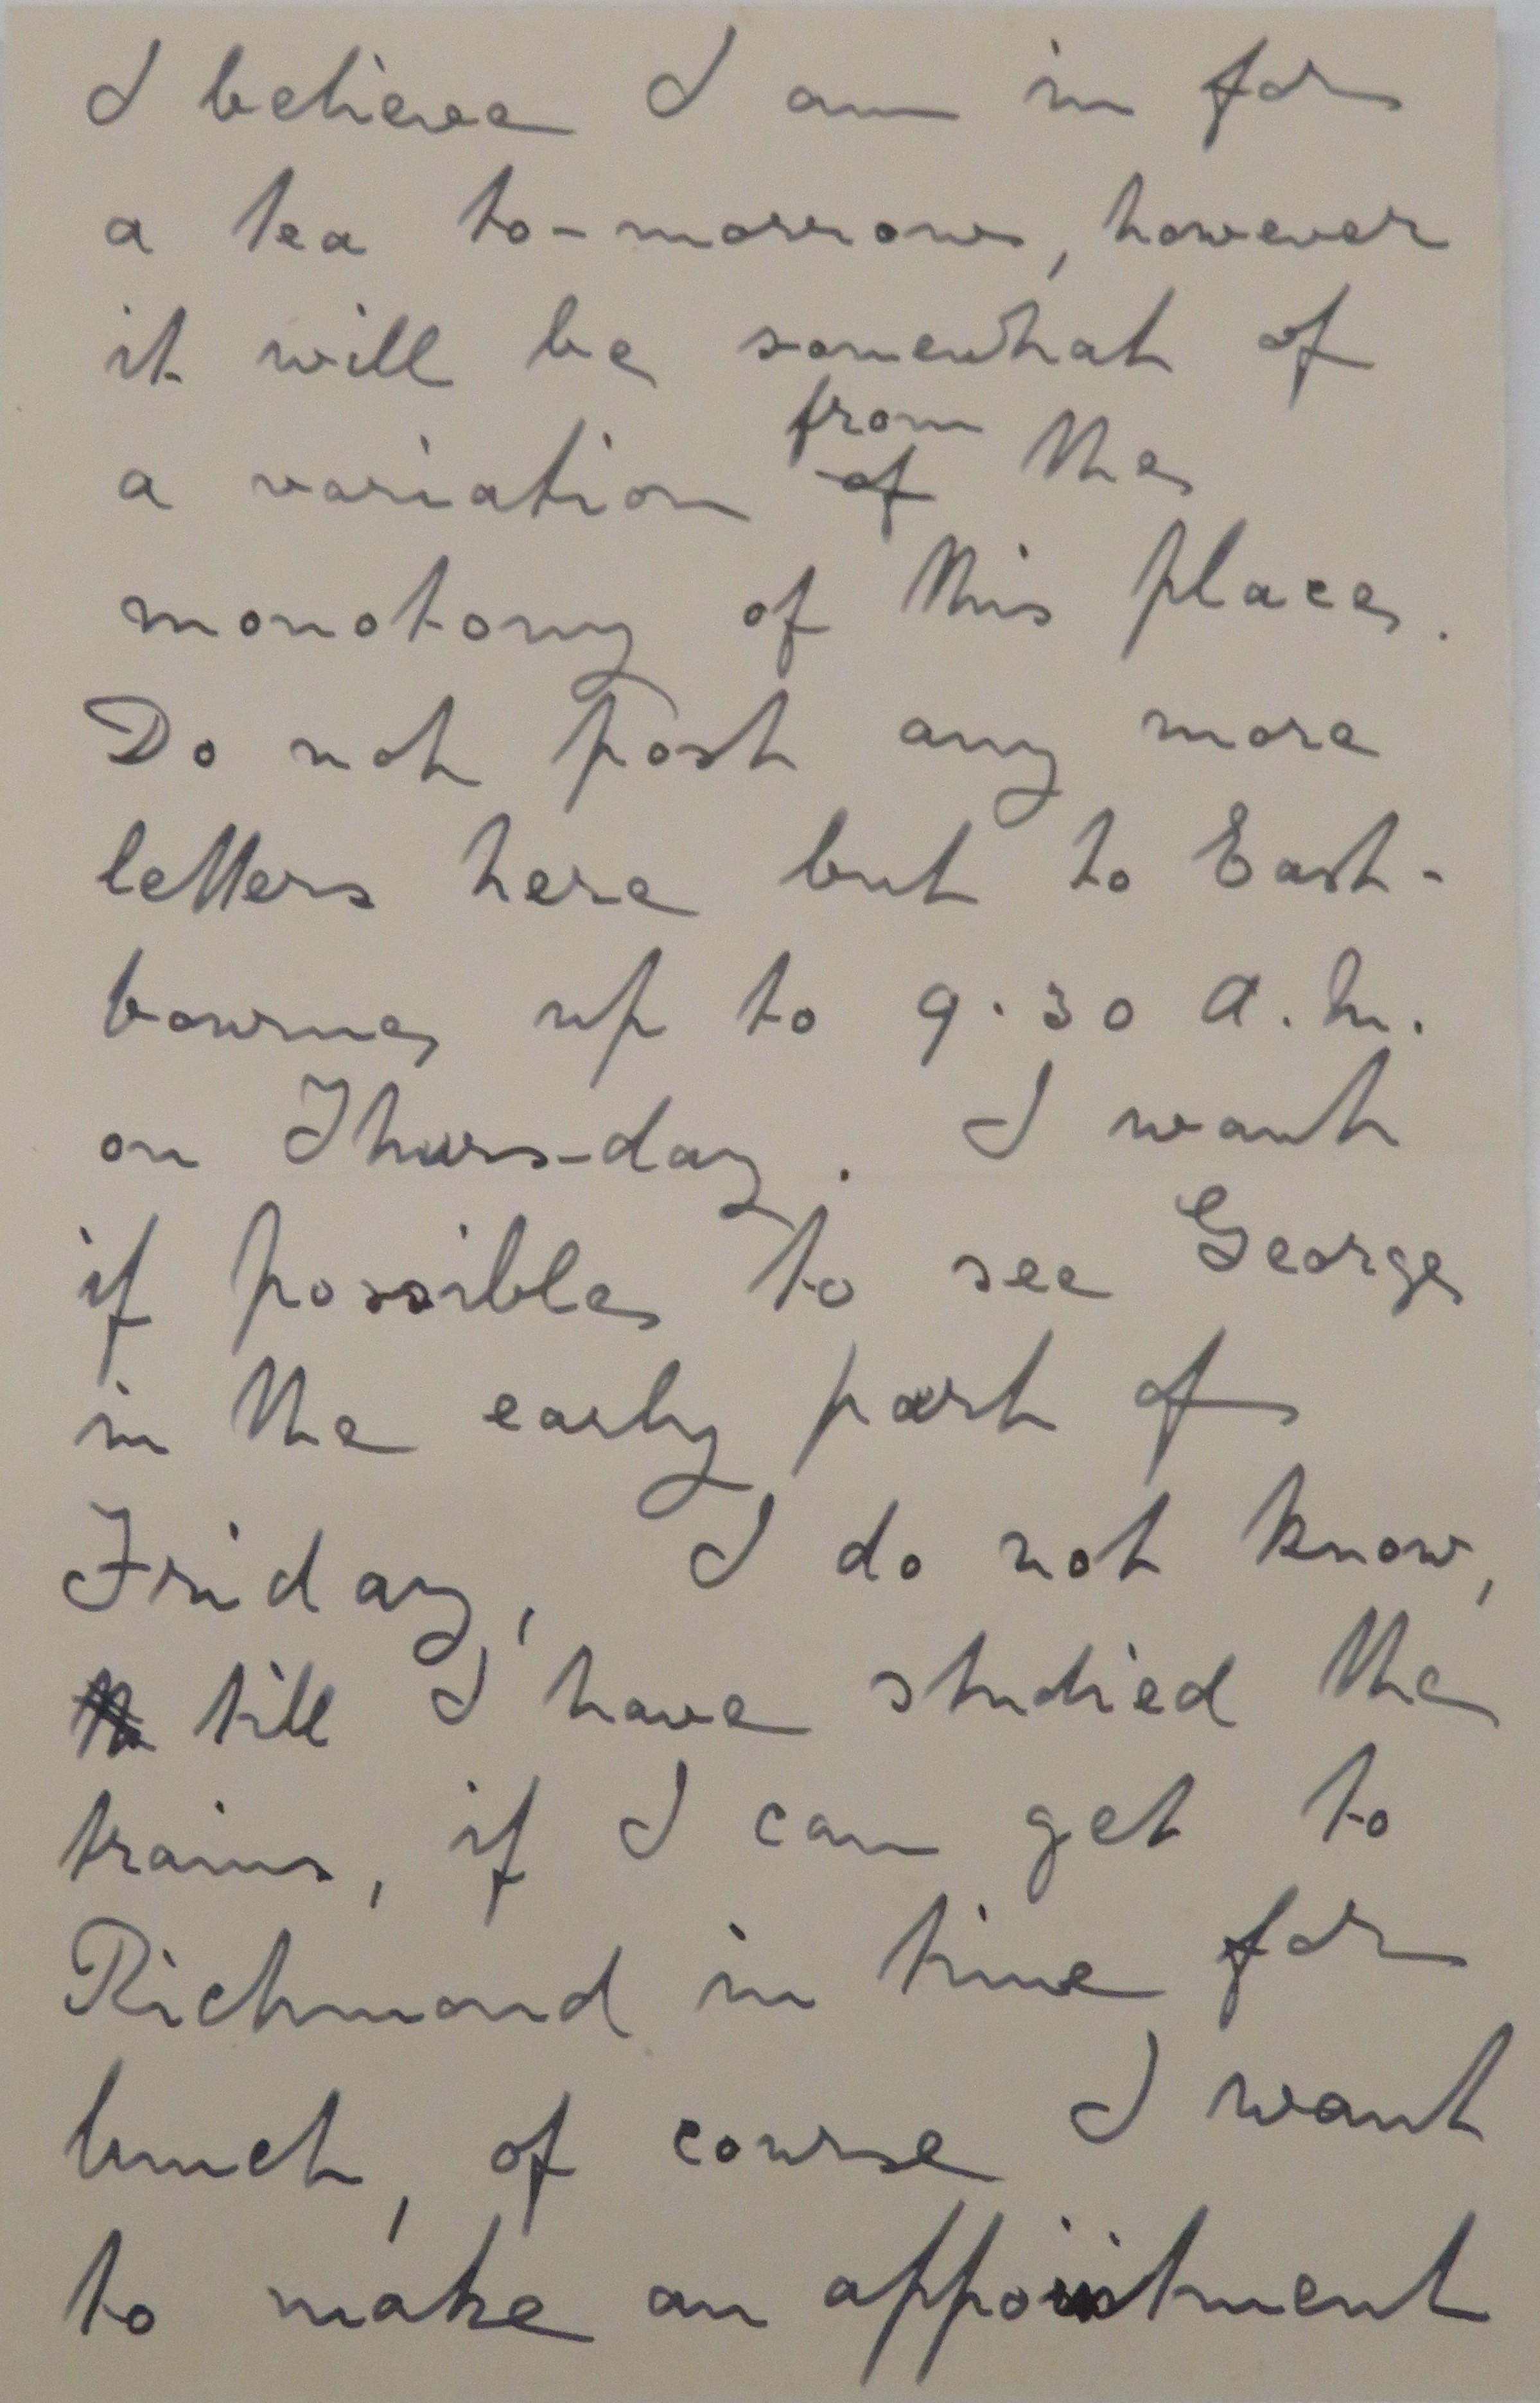 I believe I am in for
a tea to-morrow, however
it will be somewhat of
from
a variation of the
monotony of this place.
Do not post any more
letters here but to East-
bourne up to 9.30 a.m.
on Thurs-day. I want
if possible to see George
in the early part of
Friday, I do not know,
till I have studied the
trains, if I can get to
Richmond in time for
lunch, of course I want
to make an appointment